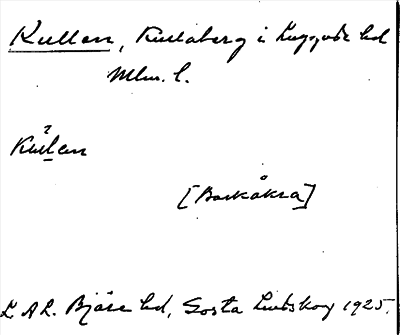 Kullen, Kullaberg i Luggude hd
Mlm. l.
Kullen
[Barkåkra]
L. A. L. Bjäre hd, Gösta Lindskog 1925.